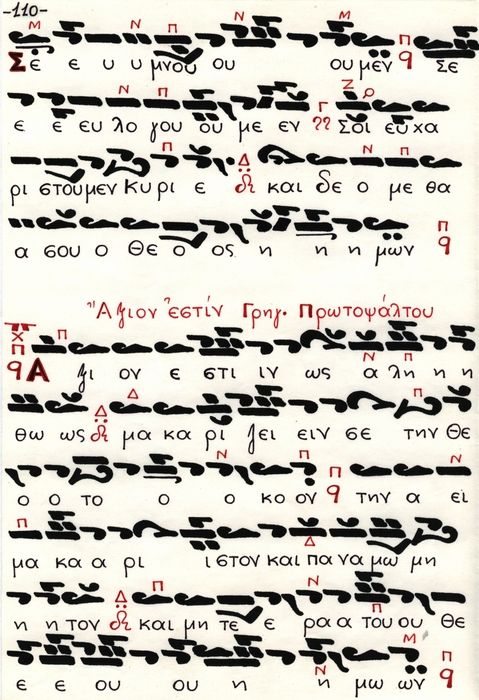 -110-
Σε ε υ υ μνου ου ου μεν Σε
ε ε ευ λο γου ου με εν Σοι ευ χα
ρι στου μεν Κυ ρι ε και δε ο με θα
α σου ο Θε ο ος η η η μων
Ἄξιον ἐστίν Γρηγ. Πρωτοψάλτου
Α ξι ον ε στι ιν ως α λη η η
θω ως μα κα ρι ζει ειν σε την Θε
ο ο το ο ο κο ον την α ει
μα κα α ρι ι στον και πα να μω μη
η η τον και μη τε ε ρα α του ου Θε
ε ε ου ου η η μω ων